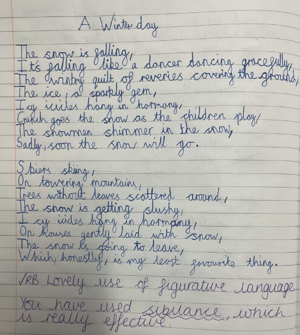 A Winter day
The snow is falling,
It's falling like a dancer dancing gracefully,
The wintry quilt of reveries covering the ground,
The ice, a sparkly gem,
Icy icicles hang in harmony,
Crunch goes the snow as the children play
The snowmen shimmer in the snow,
Sadly, soon the snow will go.
Skiers skiing,
On towering mountains,
Trees without leaves scattered around,
The snow is getting slushy,
Icy icicles hang in harmony,
On houses gently laid with snow,
The snow is going to leave,
Which, honestly, is my least favourite thing.
Lovely use of figurative language
You have used sibilance, which
is really effective.